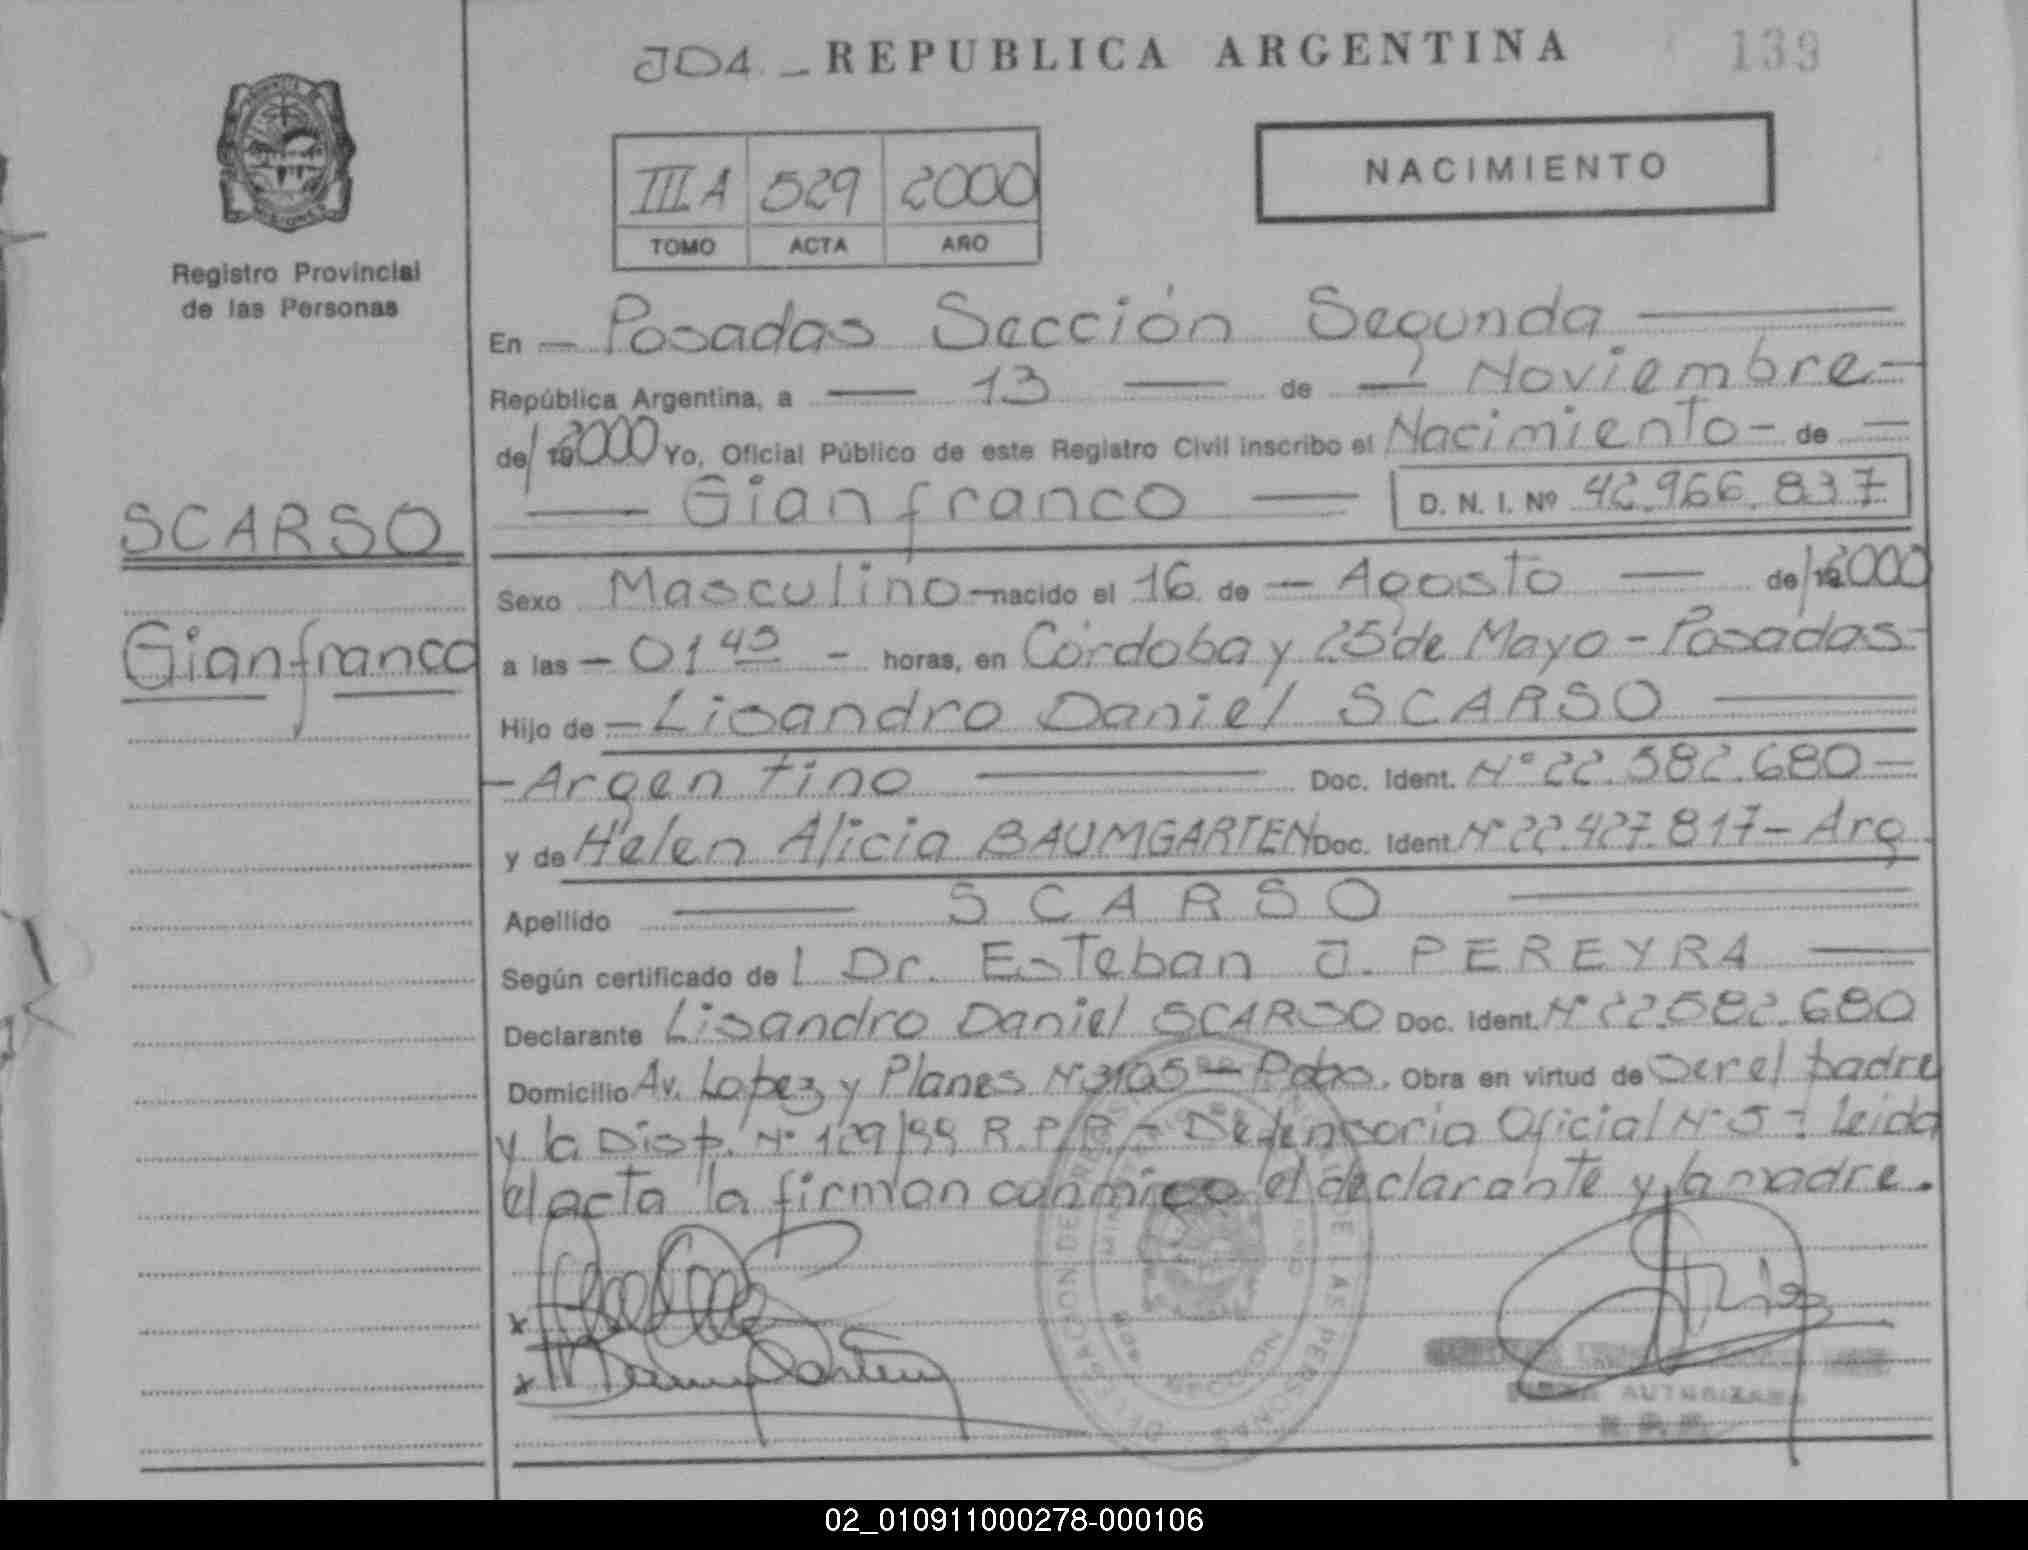 JD4 - REPUBLICA ARGENTINA 139
III A 529 2000
TOMO ACTA AÑO
NACIMIENTO
Registro Provincial
de las Personas
SCARSO
Gianfranco
En — Posadas Sección Segunda —
República Argentina, a — 13 — de — Noviembre —
de / 19 2000 Yo, Oficial Público de este Registro Civil inscribo el Nacimiento - de —
— Gianfranco — D. N. I. Nº 42.966.837
Sexo Masculino - nacido el 16 de — Agosto — de / 19 2000
a las — 01 45 - horas, en Córdoba y 25 de Mayo - Posadas -
Hijo de — Lisandro Daniel SCARSO —
- Argentino — Doc. Ident. Nº 22.582.680 —
y de Helen Alicia BAUMGARTEN Doc. Ident. Nº 22.427.817 - Arg.
Apellido — SCARSO —
Según certificado de Dr. Esteban J. PEREYRA —
Declarante Lisandro Daniel SCARSO Doc. Ident. Nº 22.582.680
Domicilio Av. Lopez y Planes Nº 3105 — Pdas. Obra en virtud de Ser el padre
y la Disp. Nº 129/99 R.P.P. - Defensoria Oficial Nº 5 - Leida
el acta la firman conmigo el declarante y la madre.
x
x
AUTORIZADA
R. P. P.
02_010911000278-000106